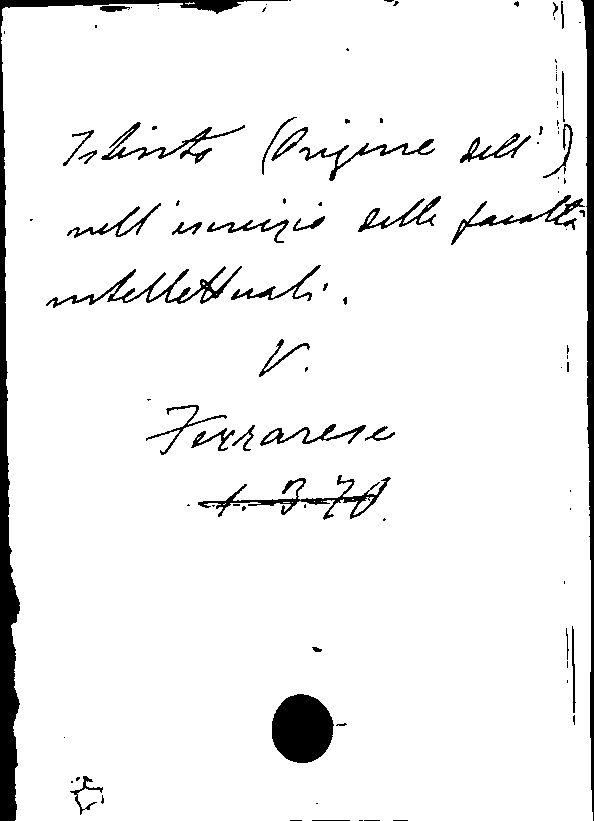 Istinto (Origine dell')
nell'esercizio delle facoltà
intellettuali.
V.
Ferrarese
1.3.70